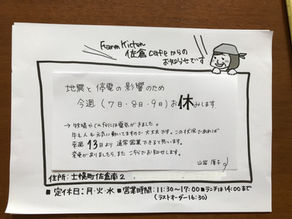 Farm Kitchen
佐倉 Cafe からの
お知らせです
地震と停電の影響のため
今週(7日・8日・9日)お休みします
→ 牧場や にも電気がきました。
牛も人も元気に動いてますので大丈夫です。この状況であれば
来週13日より通常営業できると思います。
変更がありましたら、またこちらでお知らせします。
住所: 士幌町佐倉南2
■定休日:月・火・水 ■営業時間:11:30〜17:00 ランチは14:00まで
(ラストオーダー16:30)